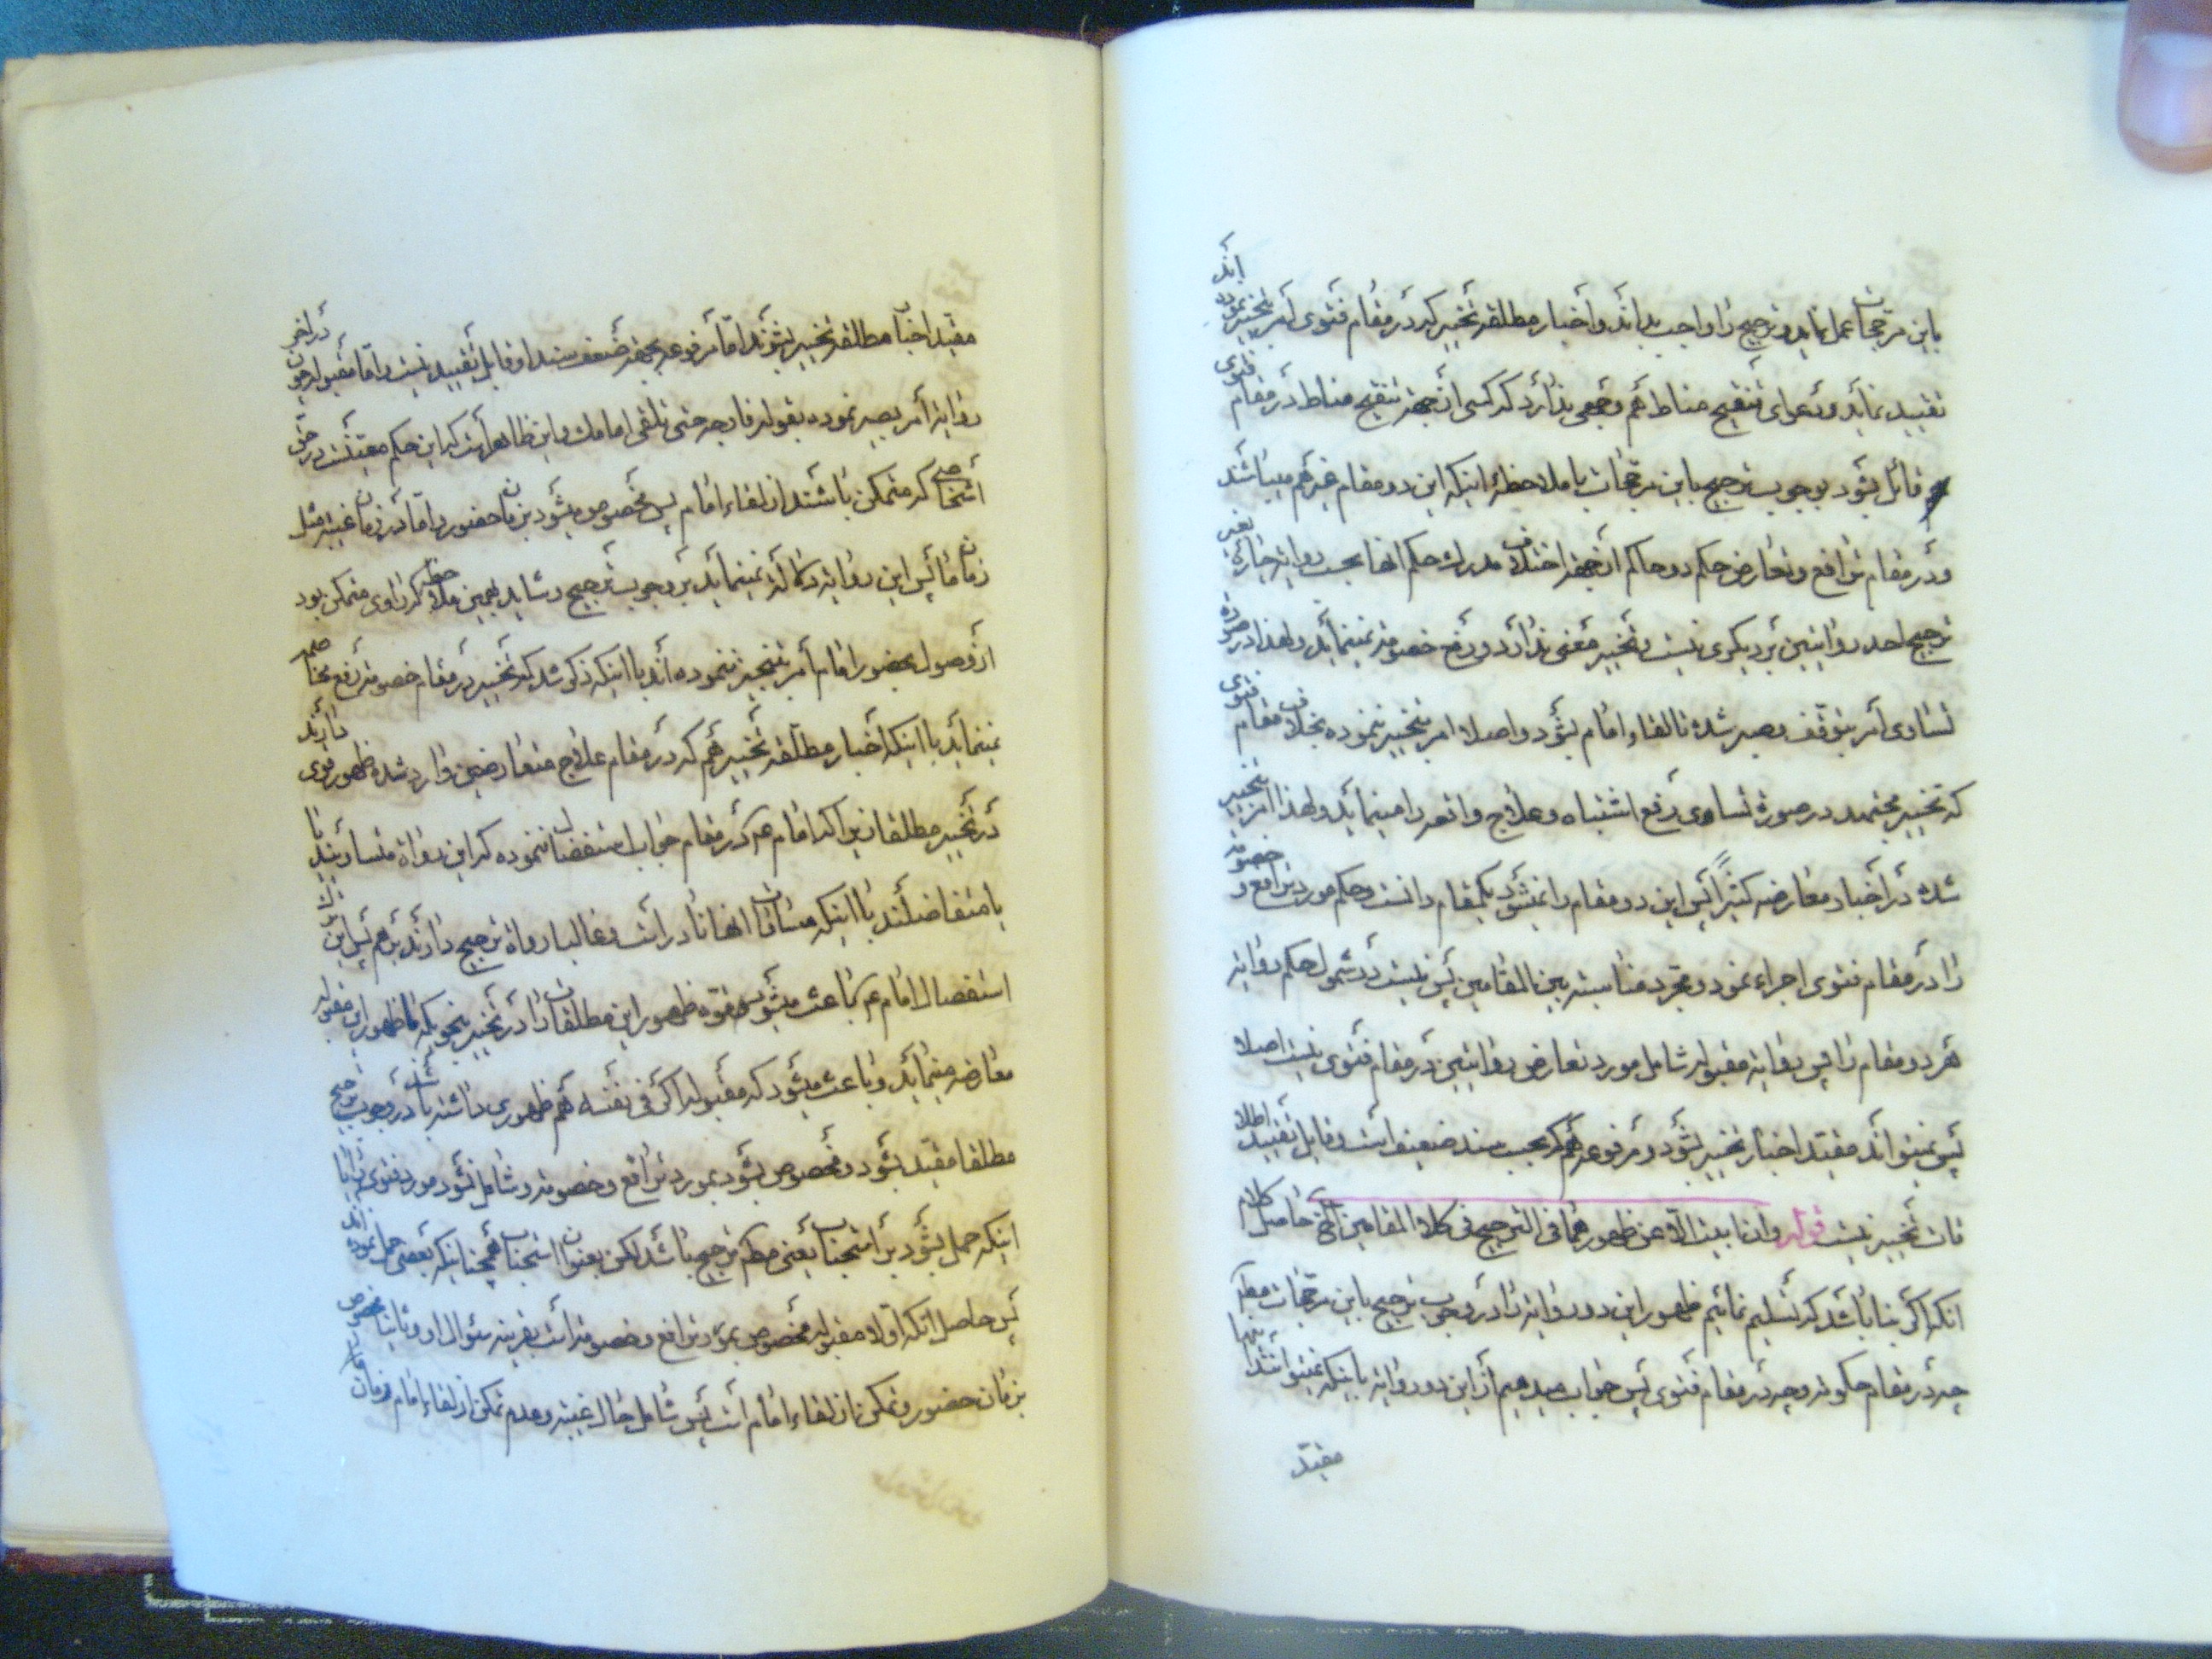 باین مرجحات عمل نماید و ترجیح را واجب بداند و اخبار مطلقه تخییر که در مقام فتوی امر بتخییر نموده اند
تقیید نماید و دعوای تنقیح مناط هم وجهی ندارد که کسی از جهة تنقیح مناط در مقام فتوی
قائل بشود بوجوب ترجیح باین مرجحات با ملاحظه اینکه این دو مقام غیر هم میباشند
و در مقام ترافع و تعارض حکم دو حاکم از جهة اختلاف مدرک حکم انها بحسب روایة چاره بغیر
ترجیح احد روایتین بر دیگری نیست و تخییر مغنی ندارد و رفع خصومة نمینماید و لهذا در صورة
تساوی امر بتوقف و صبر شده تا لقاء امام بشود و اصلا امر بتخییر ننموده بخلاف مقام فتوی
که تخییر مجتهد در صورة تساوی رفع اشتباه و علاج واقعه را مینماید و لهذا امر بتخییر
شده در اخبار معارضه کثیراً پس این دو مقام را نمیشود یکمقام دانست و حکم مورد ترافع و خصومة
را در مقام فتوی اجراء نمود و مجرد مناسبة بین المقامین پس نیست در شمول حکم روایة
هر دو مقام را پس روایة مقبوله شامل مورد تعارض روایتین در مقام فتوی نیست اصلا
پس نمیتواند مقید اخبار تخییر بشود و مرفوعه هم که بحسب سند ضعیف است و قابل تقیید اطلا
قات تخییر نیست قوله وان ابیت الا عن ظهورهما فی الترجیح فی کلا المقامین الخ حاصل کلام
انکه اگر بنا باشد که تسلیم نمائیم ظهور این دو روایة را در وجوب ترجیح باین مرجحات مطلقا
چه در مقام حکومة و چه در مقام فتوی پس جواب میدهیم از این دو روایة باینکه نمیتوانند اینها
مقید
مقید اخبار مطلقه تخییر بشوند اما مرفوعه بجهة ضعف سند او قابل تقیید نیست و اما مقبوله چون در اخر
روایة امر بصبر نموده بقوله فارجه حتی تلقی امامک و این ظاهر است که این حکم معین است در حق
اشخاصی که متمکن باشند از لقاء امام پس مخصوص میشود بزمان حضور و اما در زمان غیبة مثل
زمان ما پس این روایة دلالة نمینماید بر وجوب ترجیح و شاید بهمین ملاحظه که راوی متمکن بود
از وصول بحضور امام امر بتخییر ننموده اند با اینکه ذکر شد که تخییر در مقام خصومة رفع مخاصمه
نمینماید با اینکه اخبار مطلقه تخییر هم که در مقام علاج متعارضین وارد شده ظهور قوی دارند
در تخییر مطلقا زیرا که امام ع در مقام جواب استفصال ننموده که این رواة متساویند یا
یا متفاضلند با اینکه مساوات انها نادر است و غالبا رواة ترجیح دارند بر هم پس این ترک
استفصال امام ع باعث میشود بر قوة ظهور این مطلقات را در تخییر بنحویکه با ظهور این مقبوله
معارضه مینماید و باعث میشود که مقبوله اگر فی نفسه هم ظهوری داشته باشد در وجوب ترجیح
مطلقا مقید بشود و مخصوص بشود بمورد ترافع و خصومة و شامل نشود مورد فتوی را یا
اینکه حمل بشود بر استحباب یعنی حکم ترجیح باشد لکن بعنوان استحباب همچنانکه بعضی حمل نموده اند
پس حاصل انکه اولا مقبوله مخصوص بمورد ترافع و خصومة است بقرینه سئوال او و ثانیا مخصوص
بزمان حضور و تمکن از لقاء امام است پس شامل حال غیبة و عدم تمکن از لقاء امام و زمان